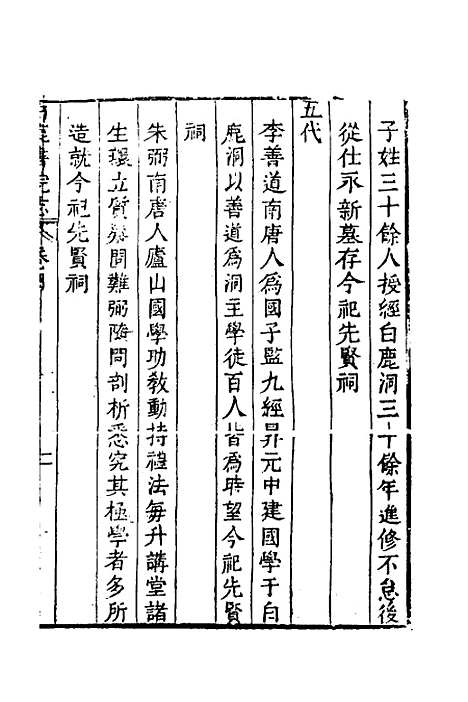 子姓三十餘人授經白鹿洞三十餘年進修不怠後
從仕永新墓存今祀先賢祠
五代
李善道南唐人爲國子監九經昇元中建國學于白
鹿洞以善道爲洞主學徒百人皆爲時望今祀先賢
祠
朱弼南唐人廬山國學功教動持禮法每升講堂諸
生環立質疑問難弼隨問剖析悉究其極學者多所
造就今祀先賢祠